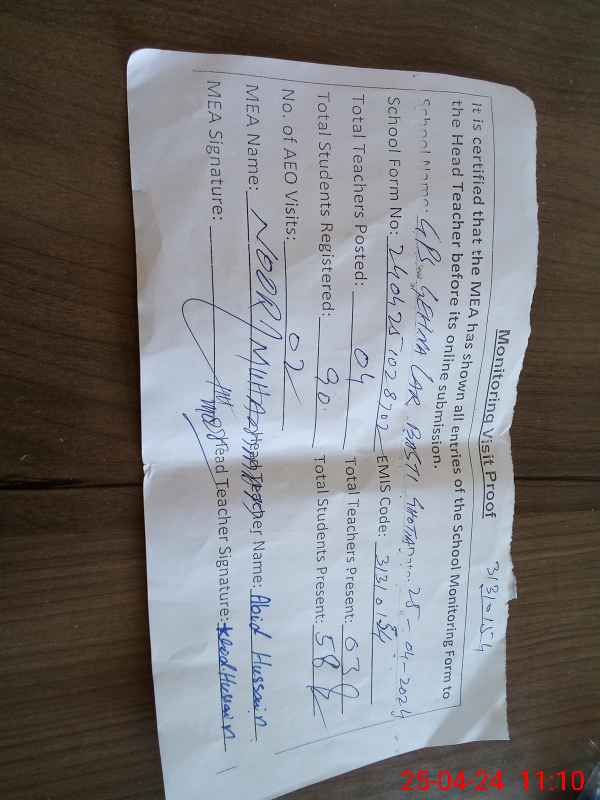 Monitoring Visit Proof 31310154
It is certified that the MEA has shown all entries of the School Monitoring Form to
the Head Teacher before its online submission.
School Name: GPS GEHNA LAR BASTI 25-04-2024
School Form No: 2404251028702 EMIS Code: 31310154
Total Teachers Posted: 04 Total Teachers Present: 03
Total Students Registered: 90 Total Students Present: 58
No. of AEO Visits: 02
MEA Name: NOOR MUHAMMAD Head Teacher Name: Abid Hussain
MEA Signature: Head Teacher Signature: Abid Hussain
25-04-24 11:10